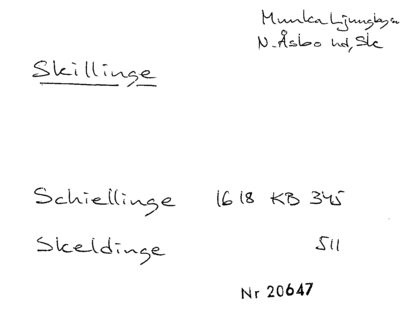 Munka Ljungby sn
N. Åsbo hd, Sk
Skillinge
Schiellinge 1618 KB 345
Skeldinge 511
Nr 20647